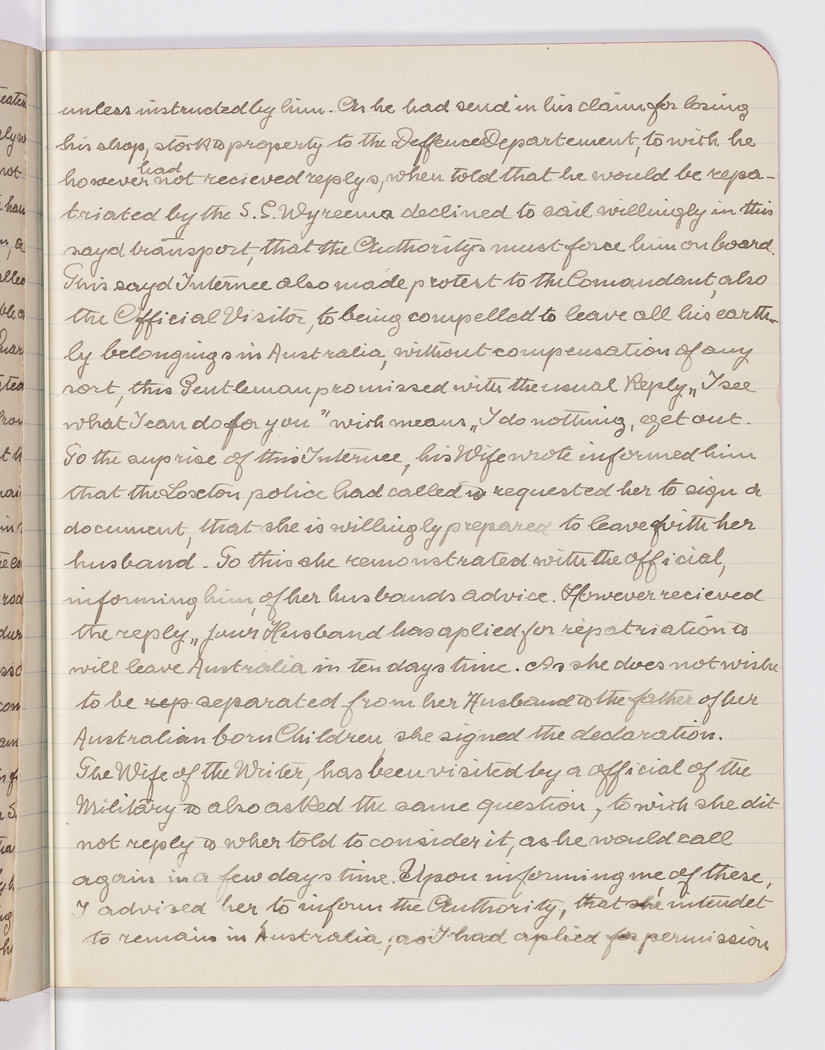 unless instructed by him. As he had send in his claim for losing
his shop, stock & property to the Deffence Departement, to wich he
however had not recieved replys, when told that he would be repa-
triated by the S.S. Wyreema declined to sail willingly in this
sayd transport, that the Authoritys must force him on board.
This sayd Internee also made protest to the Comandant, also
the Official Visitor, to being compelled to leave all his earth-
ly belongings in Australia, without compensation of any
sort, this Gentleman promissed with the usual Reply „I see
what I can do for you" wich means „I do nothing, get out.
To the suprise of this Internee, his Wife wrote informed him
that the Loxton police had called & requested her to sign a
document, that she is willingly prepared to leave with her
husband. To this she remonstrated with the official,
informing him, of her husbands advice. However recieved
the reply „ your Husband has aplied for repatriation &
will leave Australia in ten days time. As she does not wishe
to be rep separated from her Husband & the father of her
Australian born Children, she signed the declaration.
The Wife of the Writer, has been visited by a official of the
Military & also asked the same question, to wich she dit
not reply & wher told to consider it, as he would call
again in a few days time. Upon informing me of these,
I advised her to inform the Authority, that she intendet
to remain in Australia, as I had aplied for permission